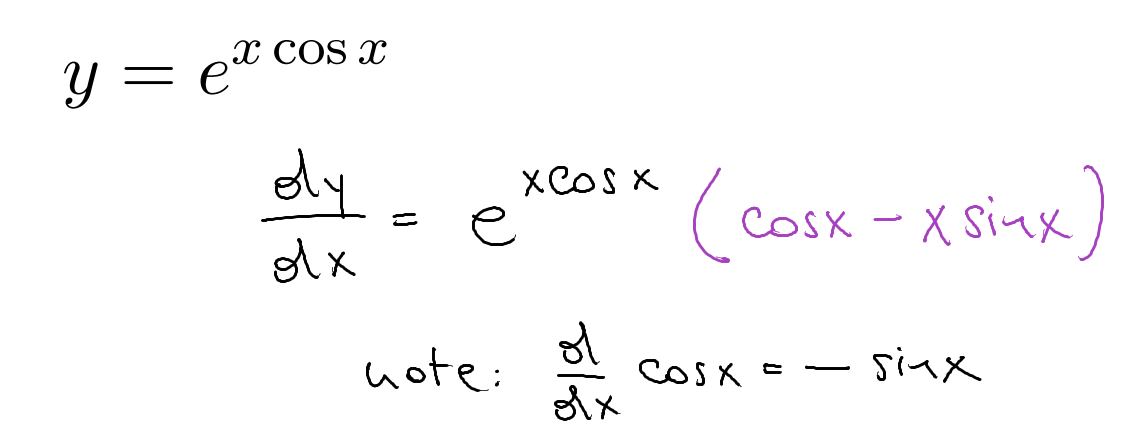 y = e^{x cos x}
dy/dx = e^{x cos x} (cosx - x sinx)
note: d/dx cosx = - sinx